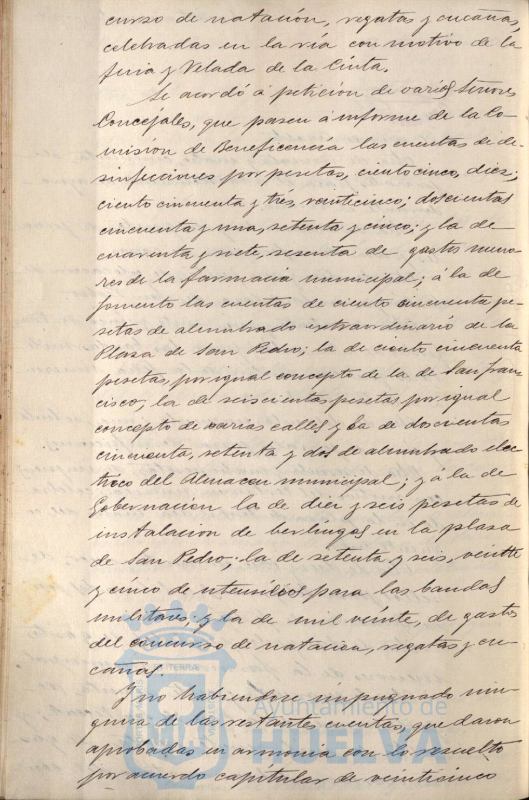 curso de natación, regatas y cucañas,
celebradas en la ría con motivo de la
feria y Velada de la Cinta.
Se acordó á petición de varios Señores
Concejales, que pasen á informe de la Co-
misión de Beneficencia las cuentas de de-
sinfecciones por pesetas, ciento cinco, diez;
ciento cincuenta y tres, veinticinco; doscientas
cincuenta y una, setenta y cinco; y la de
cuarenta y siete, sesenta de gastos meno-
res de la farmacia municipal; á la de
fomento las cuentas de ciento cincuenta pe-
setas de alumbrado extraordinario de la
Plaza de San Pedro; la de ciento cincuenta
pesetas, por igual concepto de la de San Fran-
cisco; la de seiscientas pesetas por igual
concepto de varias calles y la de doscientas
cincuenta, setenta y dos de alumbrado elec-
trico del Almacen municipal; y á la de
Gobernación la de diez y seis pesetas de
instalacion de berlingas en la plaza
de San Pedro; la de setenta y seis, veinte
y cinco de utensilios para las bandas
militares; y la de mil veinte, de gastos
del concurso de natacion, regatas y cu-
cañas.
Y no habiendose impugnado nin-
guna de las restantes cuentas, quedaron
aprobadas en armonía con lo resuelto
por acuerdo capitular de veinticinco
Ayuntamiento de
HUELVA